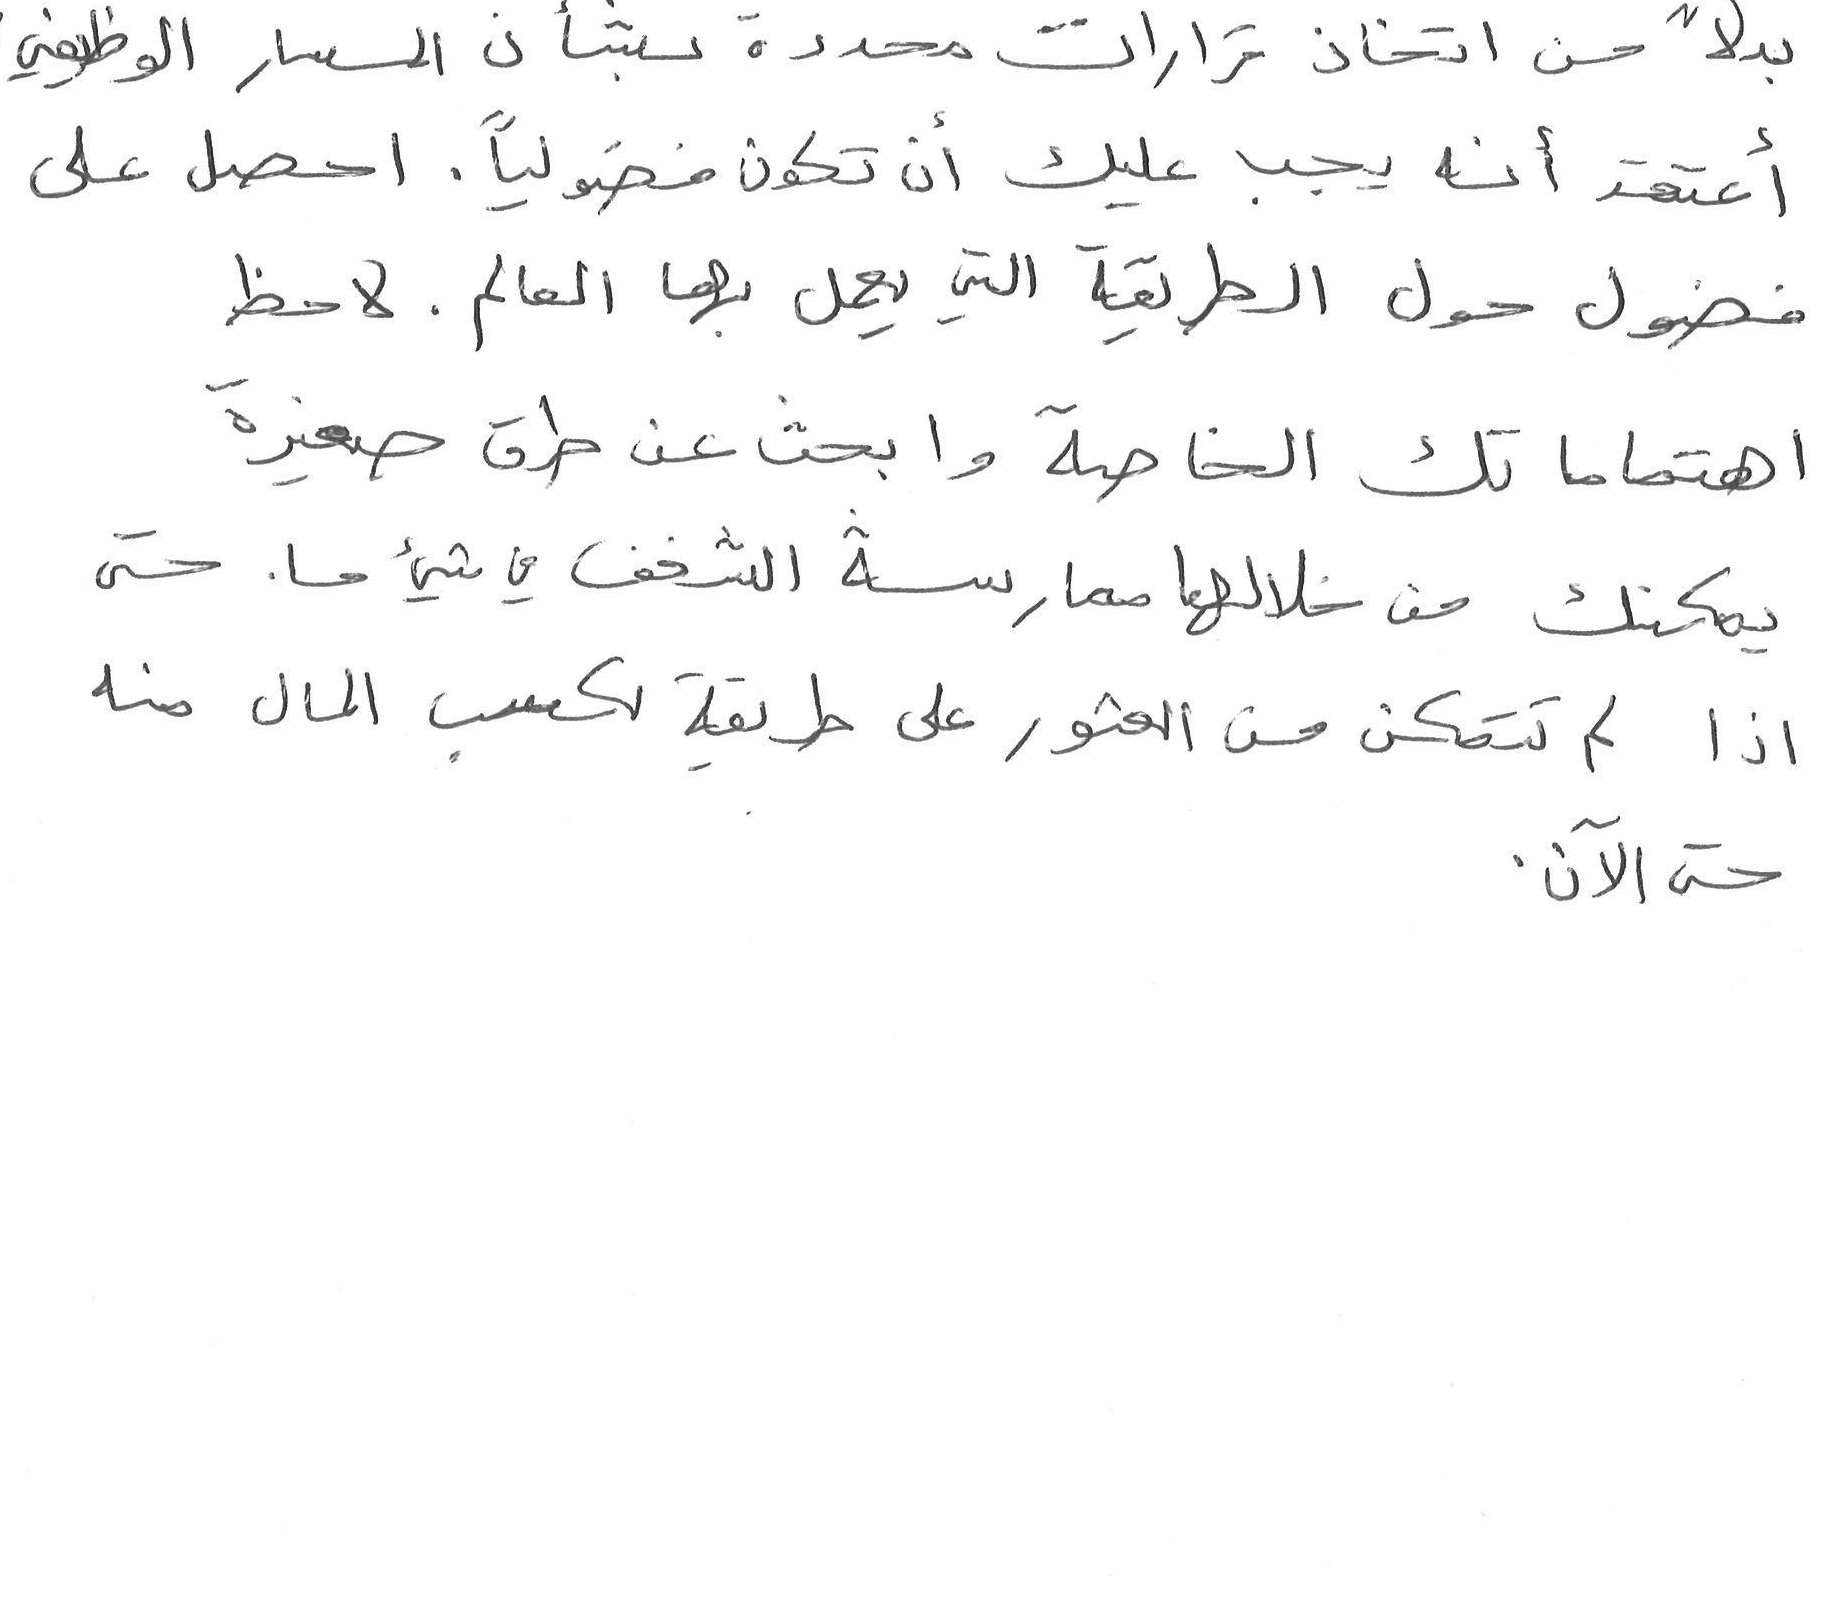 بدلاً من اتخاذ قرارات محددة بشأن المسار الوظيفي
أعتقد أنه يجب عليك أن تكون فضولياً. احصل على
فضول حول الطريقة التي يعمل بها العالم. لاحظ
اهتماماتك الخاصة وابحث عن طرق صغيرة
يمكنك من خلالها ممارسة الشغف في شيء ما. حتى
اذا لم تتمكن من العثور على طريقة لكسب المال منه
حتى الآن.